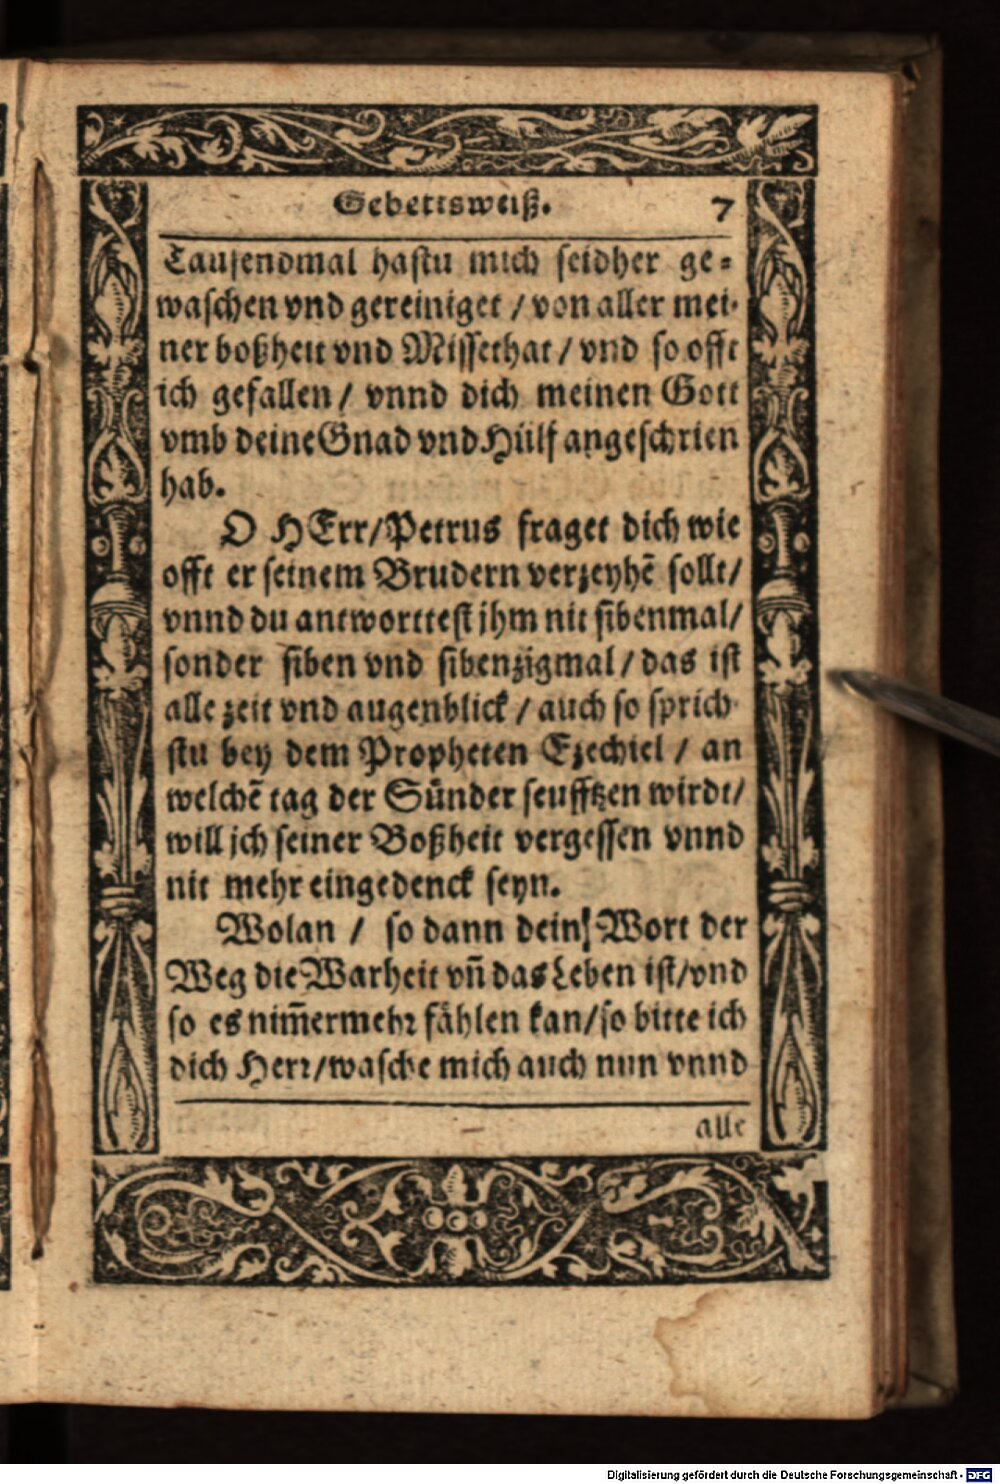 Gebettsweiß. 7
Tausendmal hastu mich seidher ge⸗
waschen vnd gereiniget / von aller mei⸗
ner boßheit vnd Missethat / vnd so offt
ich gefallen / vnnd dich meinen Gott
vmb deine Gnad vnd Hülf angeschrien
hab.
O HErr/Petrus fraget dich wie
offt er seinem Brudern verzeyhẽ sollt/
vnnd du antworttest jhm nit sibenmal/
sonder siben vnd sibenzigmal / das ist
alle zeit vnd augenblick / auch so sprich⸗
stu bey dem Propheten Ezechiel / an
welchẽ tag der Sünder seufftzen wirdt/
will jch seiner Boßheit vergessen vnnd
nit mehr eingedenck seyn.
Wolan / so dann dein Wort der
Weg die Warheit vñ das Leben ist/vnd
so es nim̃ermehr fählen kan/so bitte ich
dich Herr/wasche mich auch nun vnnd
alle
Digitalisierung gefördert durch die Deutsche Forschungsgemeinschaft - DFG